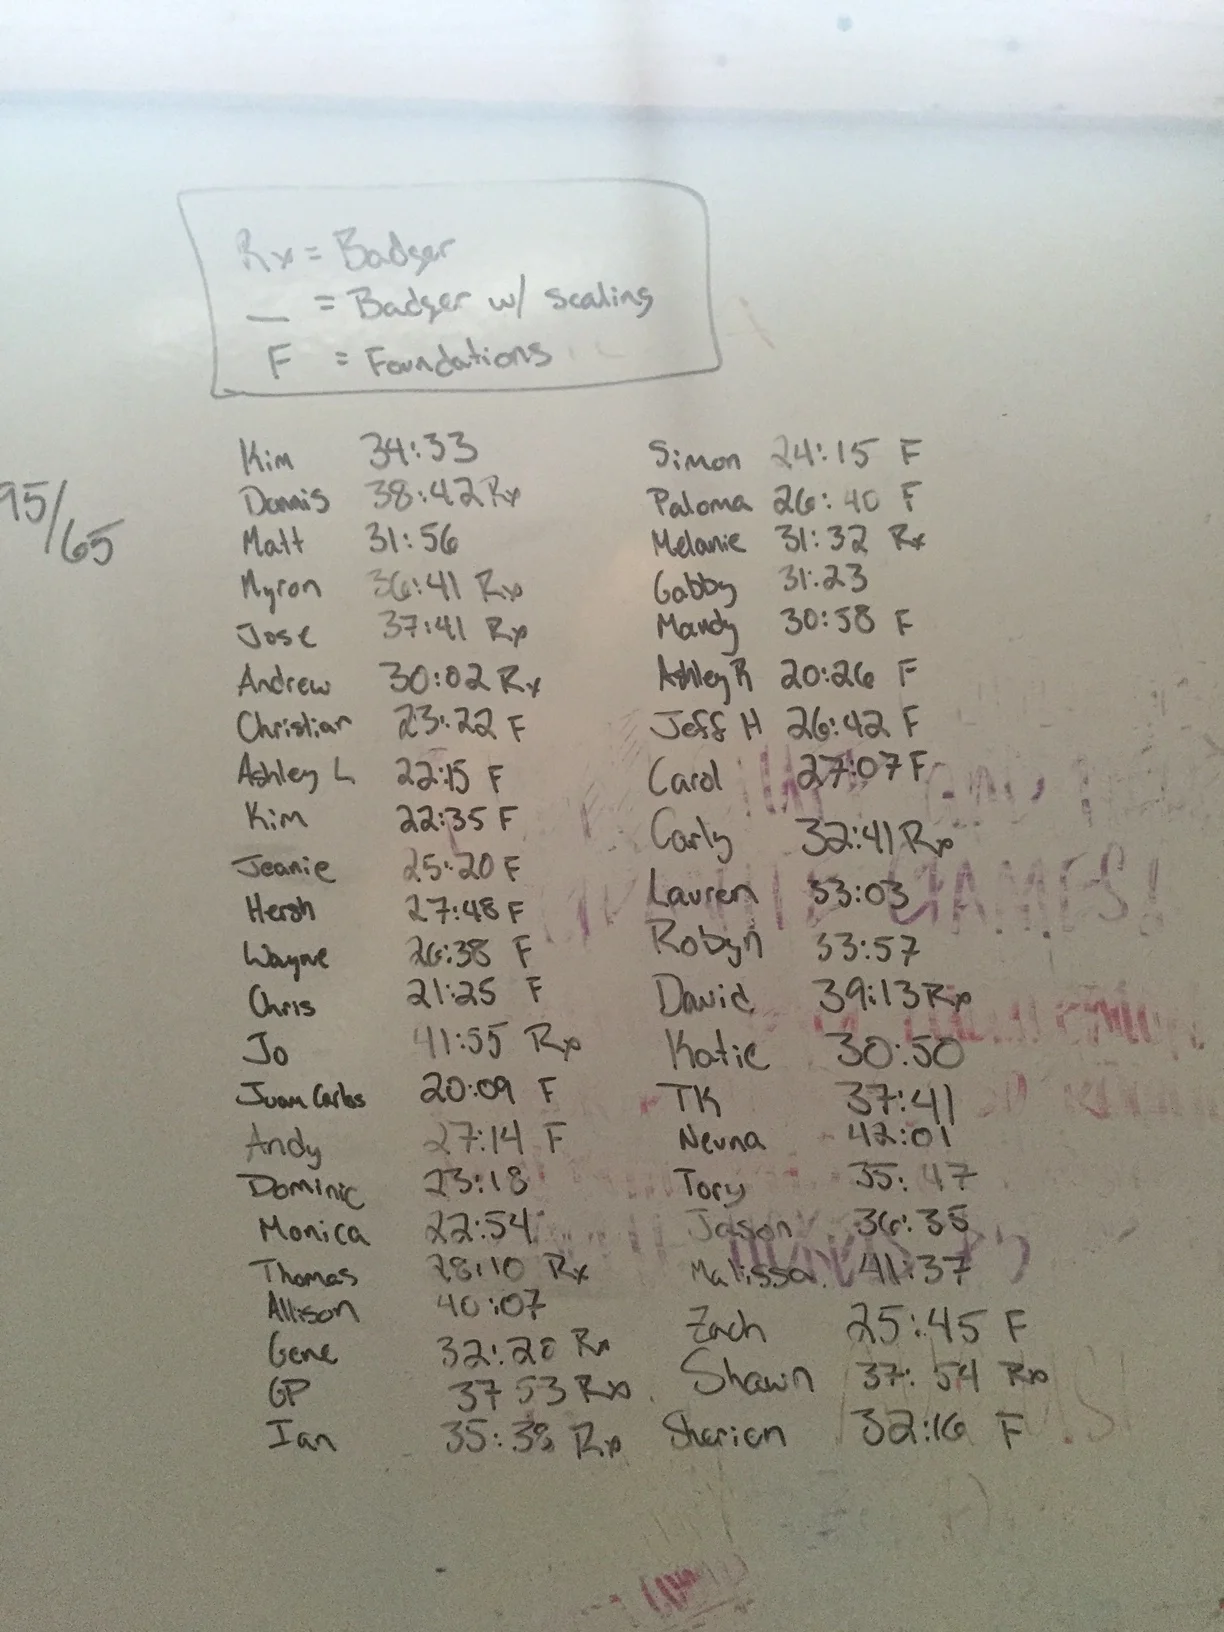 Rx = Badger
_ = Badger w/ scaling
F = Foundations
95/65
Kim 34:33
Dennis 38:42 Rx
Matt 31:56
Myron 36:41 Rx
Jose 37:41 Rx
Andrew 30:02 Rx
Christian 23:22 F
Ashley L 22:15 F
Kim 22:35 F
Jeanie 25:20 F
Hersh 27:48 F
Wayne 26:38 F
Chris 21:25 F
Jo 41:55 Rx
Juan Carlos 20:09 F
Andy 27:14 F
Dominic 23:18
Monica 22:54
Thomas 28:10 Rx
Allison 40:07
Gene 32:20 Rx
GP 37 53 Rx
Ian 35:38 Rx
Simon 24:15 F
Paloma 26:40 F
Melanie 31:32 Rx
Gabby 31:23
Mandy 30:58 F
Ashley R 20:26 F
Jeff H 26:42 F
Carol 27:07 F
Carly 32:41 Rx
Lauren 33:03
Robyn 33:57
David 39:13 Rx
Katie 30:50
TK 37:41
Neuna 42:01
Tory 35:47
Jason 36:35
Malissa 41:37
Zach 25:45 F
Shawn 37:54 Rx
Sharien 32:16 F
GAMES!